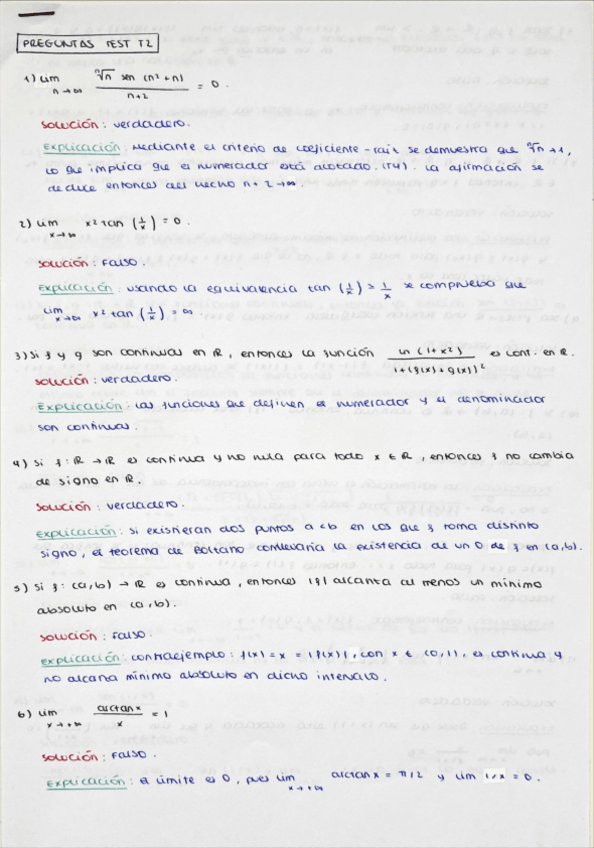 PREGUNTAS TEST T2
1) lim n→∞ ⁿ√n sen (n²+n) / n+2 = 0.
Solución: verdadero.
Explicación: Mediante el criterio de cociente-raíz se demuestra que ⁿ√n → 1,
lo que implica que el numerador está acotado. (T4). La afirmación se
deduce entonces del hecho n+2 → ∞.
2) lim x→∞ x² tan (1/x) = 0.
Solución: Falso.
Explicación: usando la equivalencia tan (1/x) ~ 1/x se comprueba que
lim x→∞ x² tan (1/x) = ∞.
3) Si f y g son continuas en ℝ, entonces la función ln (1+x²) / 1+(f(x)+g(x))² es cont. en ℝ.
Solución: verdadero.
Explicación: las funciones que definen el numerador y el denominador
son continuas.
4) Si f: ℝ → ℝ es continua y no nula para todo x ∈ ℝ, entonces f no cambia
de signo en ℝ.
Solución: verdadero.
Explicación: Si existieran dos puntos a<b en los que f toma distinto
signo, el teorema de Bolzano conllevaría la existencia de un 0 de f en (a,b).
5) Si f: (a,b) → ℝ es continua, entonces |f| alcanza al menos un mínimo
absoluto en (a,b).
Solución: Falso.
Explicación: contraejemplo: f(x) = x = |f(x)|, con x ∈ (0,1), es continua y
no alcanza mínimo absoluto en dicho intervalo.
6) lim x→+∞ arctan x / x = 1
Solución: Falso.
Explicación: el límite es 0, pues lim x→+∞ arctan x = π/2 y lim 1/x = 0.